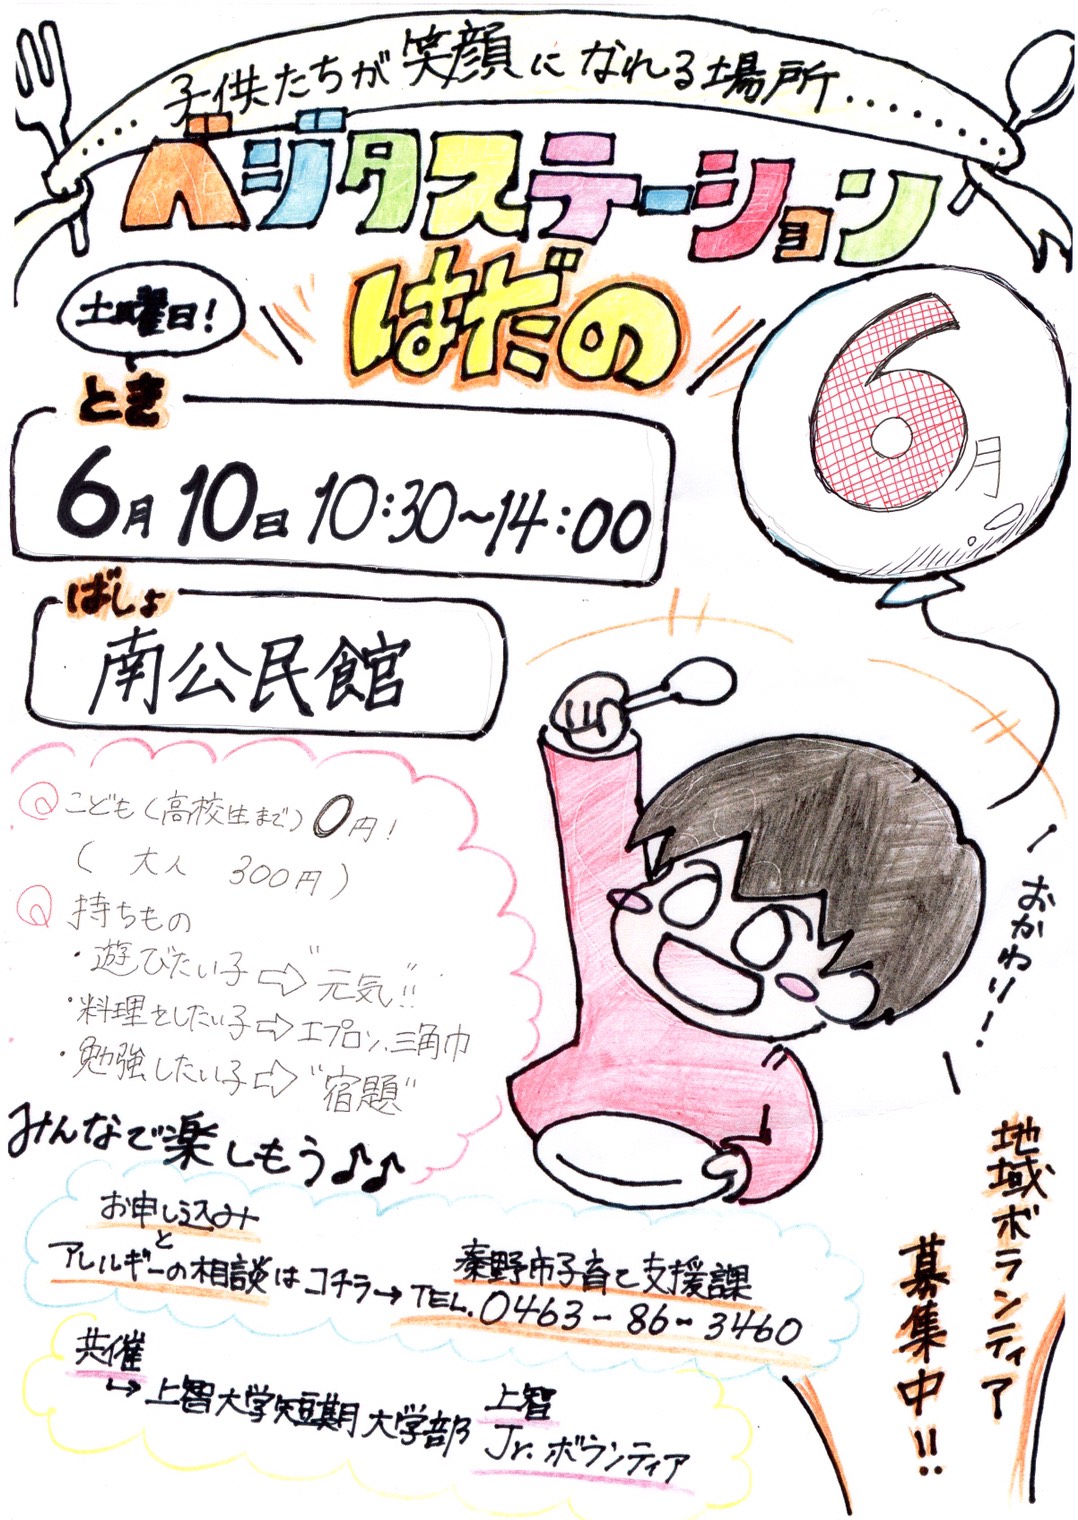 子供たちが笑顔になれる場所....
ベジタステーション
はだの
6月
土曜日!
とき
6月10日 10:30~14:00
ばしょ
南公民館
Q こども(高校生まで)0円!
( 大人 300円)
Q 持ちもの
・遊びたい子⇨"元気"!
・料理をしたい子⇨エプロン、三角巾
・勉強したい子⇨"宿題"
みんなで楽しもう♪♪
おかわり!
お申し込み
と
アレルギーの相談はコチラ→
秦野市子育て支援課
TEL.0463-86-3460
共催
↪上智大学短期大学部
上智
Jr.ボランティア
地域ボランティア
募集中!!